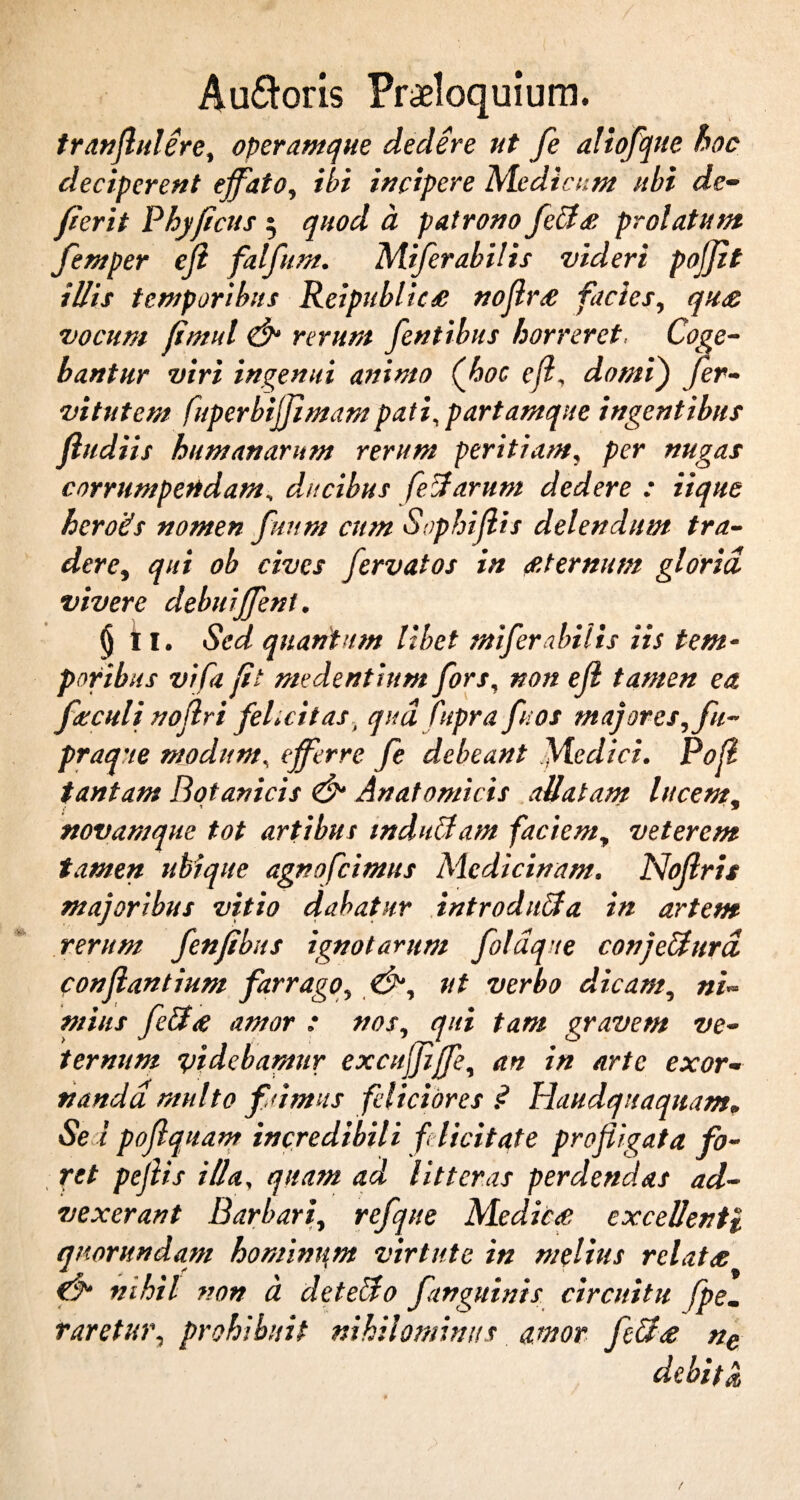 Auctoris Præloquium.
tranſtulêre, operamque dedêre ut ſe alioſque hoc
deciperent effato, ibi incipere Medicum ubi de-
ſierit Phyſicus ; quod à patrono ſectæ prolatum
ſemper eſt falſum. Miſerabilis videri poſſit
illis temporibus Reipublicæ noſtræ facies, quæ
vocum ſimul & rerum ſentibus horreret. Coge-
bantur viri ingenui animo (hoc eſt, domi) ſer-
vitutem ſuperbiſſimam pati, partamque ingentibus
ſtudiis humanarum rerum peritiam, per nugas
corrumpendam, ducibus ſectarum dedere : iique
heroës nomen ſuum cum Sophiſtis delendum tra-
dere, qui ob cives ſervatos in æternum gloriâ
vivere debuiſſent.
§ 11. Sed quantum libet miſerabilis iis tem-
poribus viſa ſit medentium ſors, non eſt tamen ea
ſæculi noſtri felicitas, quâ ſupra ſuos majores, ſu-
praque modum, efferre ſe debeant Medici. Poſt
tantam Botanicis & Anatomicis allatam lucem,
novamque tot artibus inductam faciem, veterem
tamen ubique agnoſcimus Medicinam. Noſtris
majoribus vitio dabatur introducta in artem
rerum ſenſibus ignotarum ſolâque conjecturâ
conſtantium farrago, &, ut verbo dicam, ni-
mius ſectæ amor : nos, qui tam gravem ve-
ternum videbamur excuſſiſſe, an in arte exor-
nandâ multo fuimus feliciores ? Haudquaquam.
Sed poſtquam incredibili felicitate profligata fo-
ret peſtis illa, quam ad litteras perdendas ad-
vexerant Barbari, reſque Medicæ excellenti
quorundam hominum virtute in melius relatæ,
& nihil non à detecto ſanguinis circuitu ſpe-
raretur, prohibuit nihilominus amor ſectæ ne
debitâ